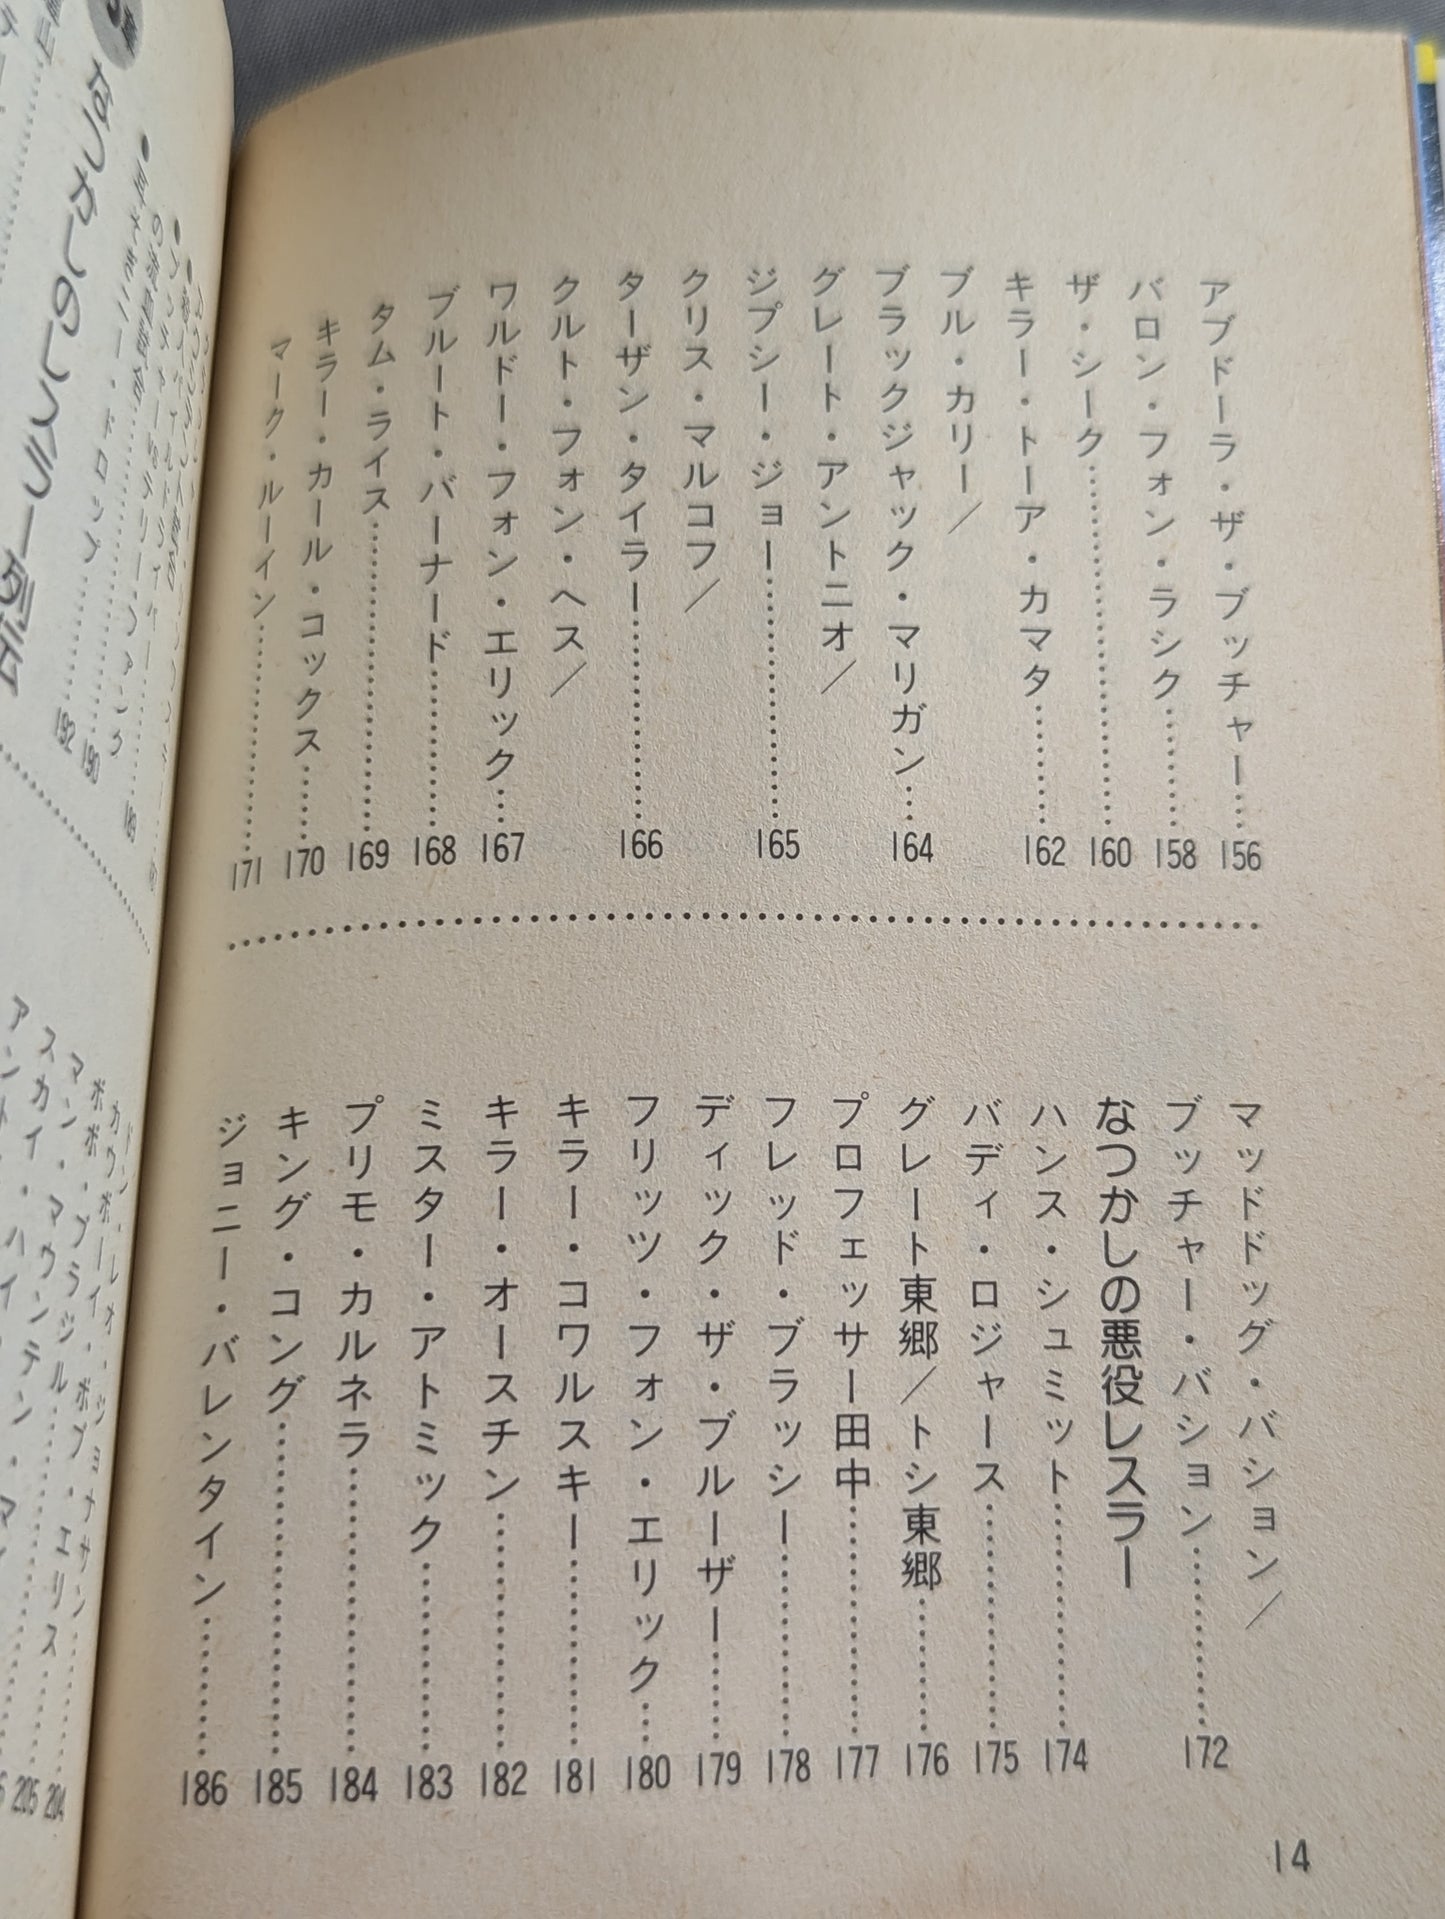 アブドーラ・ザ・ブッチャー……156
バロン・フォン・ラシク……158
ザ・シーク……160
キラー・トーア・カマタ……162
ブル・カリー／
ブラックジャック・マリガン……164
グレート・アントニオ／
ジプシー・ジョー……165
クリス・マルコフ／
ターザン・タイラー……166
クルト・フォン・ヘス／
ワルドー・フォン・エリック……167
ブルート・バーナード……168
タム・ライス……169
キラー・カール・コックス……170
マーク・ルーイン……171
マッドドッグ・バション／
ブッチャー・バション……172
なつかしの悪役レスラー
ハンス・シュミット……174
バディ・ロジャース……175
グレート東郷／トシ東郷……176
プロフェッサー田中……177
フレッド・ブラッシー……178
ディック・ザ・ブルーザー……179
フリッツ・フォン・エリック……180
キラー・コワルスキー……181
キラー・オースチン……182
ミスター・アトミック……183
プリモ・カルネラ……184
キング・コング……185
ジョニー・バレンタイン……186
14
なつかしのレスラー列伝
192
190
189
205
204